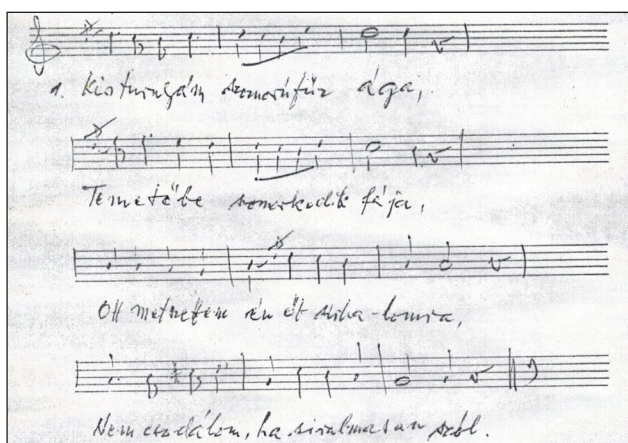 1. Kisfurugyám szomorúfűz ága,
Temetőbe szomorkodik fája,
Ott metszettem én őt siba-lomra,
Nem csodálom, ha siralmasan szól.